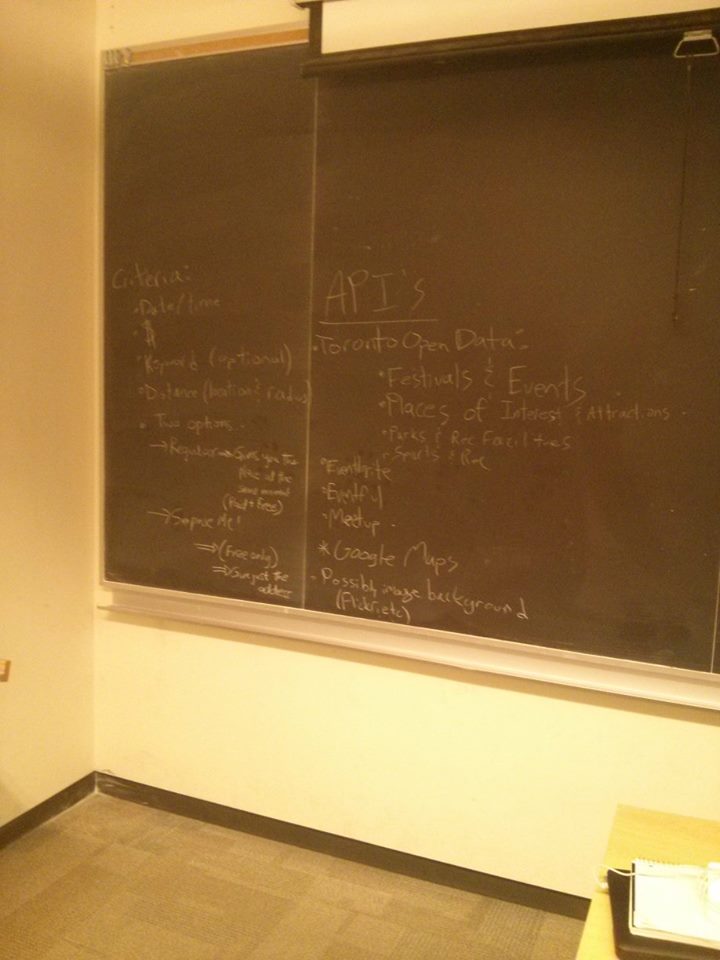 Criteria:
• Date/time
• $
• Keyword (optional)
• Distance (location & radius)
• Two options.
→ Regular → Gives you the
place at the
same moment
(Paid + Free)
→ Suprise Me!
⇒ (Free only)
⇒ Gives just the
address
API's
• Toronto Open Data:
• Festivals & Events
• Places of Interest & Attractions
• Parks & Rec Facilities
• Sports & Rec
• Eventbrite
• Eventful
• Meetup
* Google Maps
• Possibly image background
(Flickr, etc)